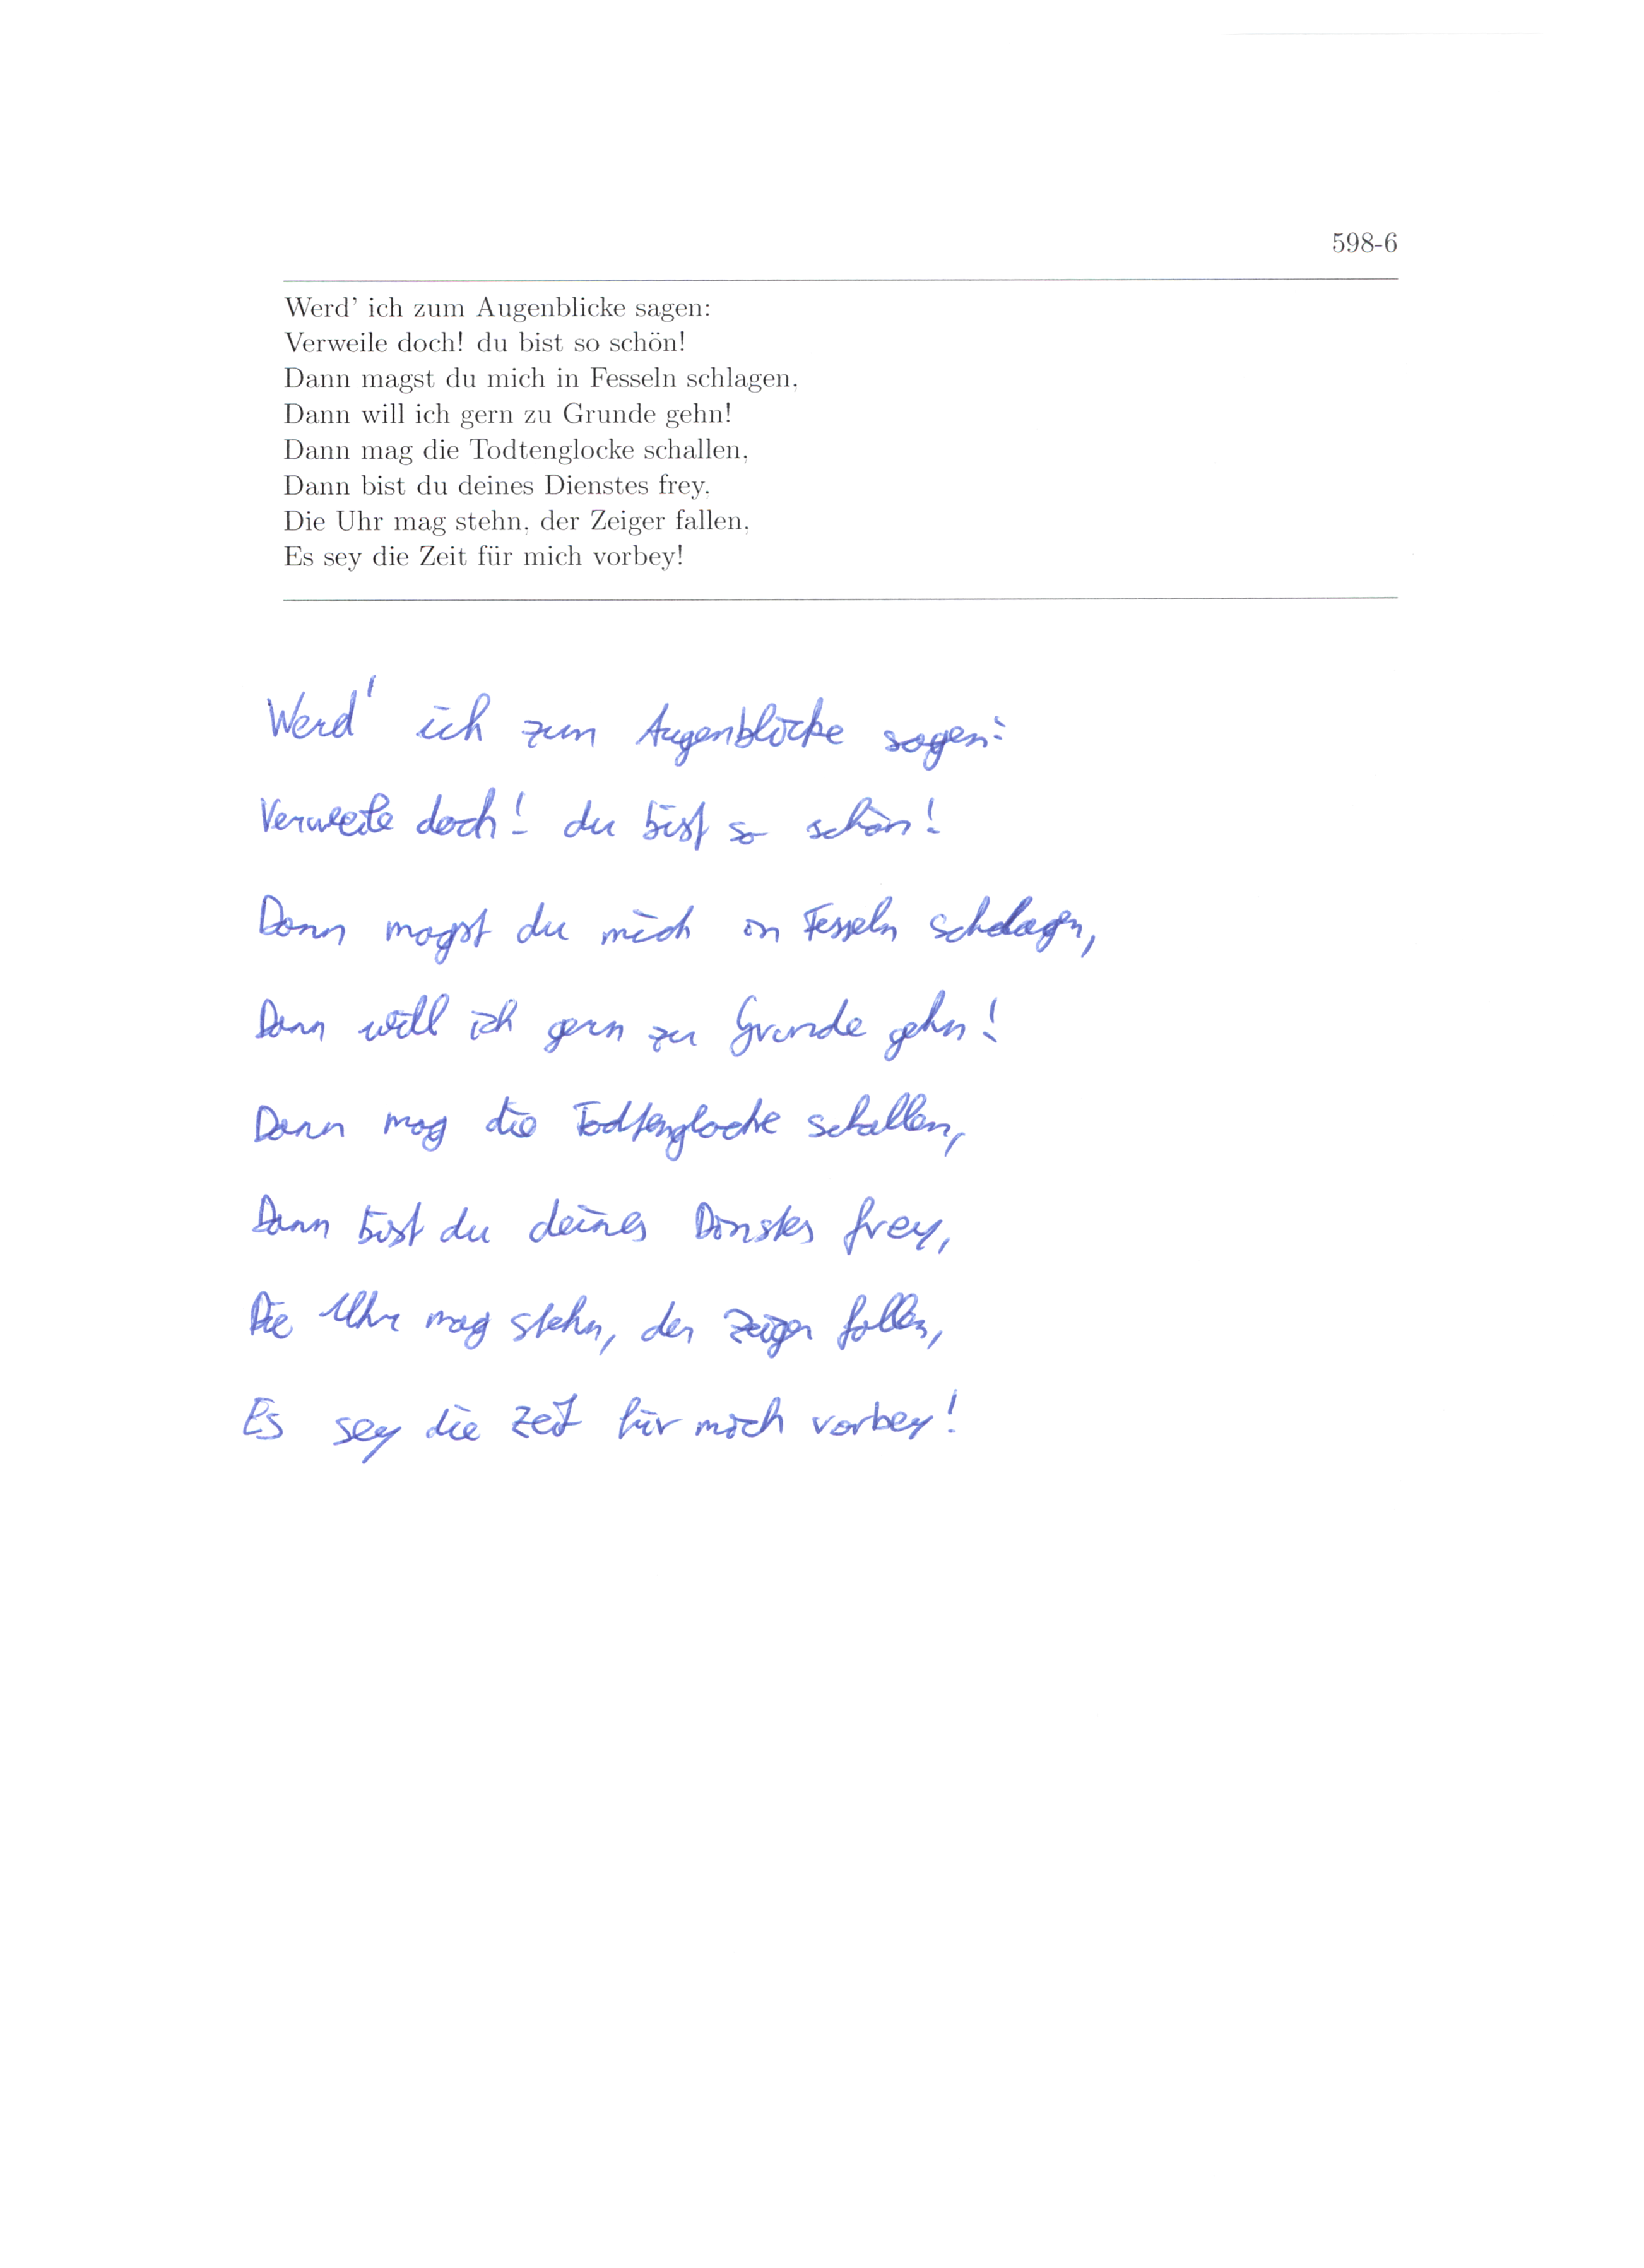 598-6
Werd' ich zum Augenblicke sagen:
Verweile doch! du bist so schön!
Dann magst du mich in Fesseln schlagen,
Dann will ich gern zu Grunde gehn!
Dann mag die Todtenglocke schallen,
Dann bist du deines Dienstes frey,
Die Uhr mag stehn, der Zeiger fallen,
Es sey die Zeit für mich vorbey!
Werd' ich zum Augenblicke sagen:
Verweile doch! du bist so schön!
Dann magst du mich in Fesseln schlagen,
Dann will ich gern zu Grunde gehn!
Dann mag die Todtenglocke schallen,
Dann bist du deines Dienstes frey,
Die Uhr mag stehn, der Zeiger fallen,
Es sey die Zeit für mich vorbey!